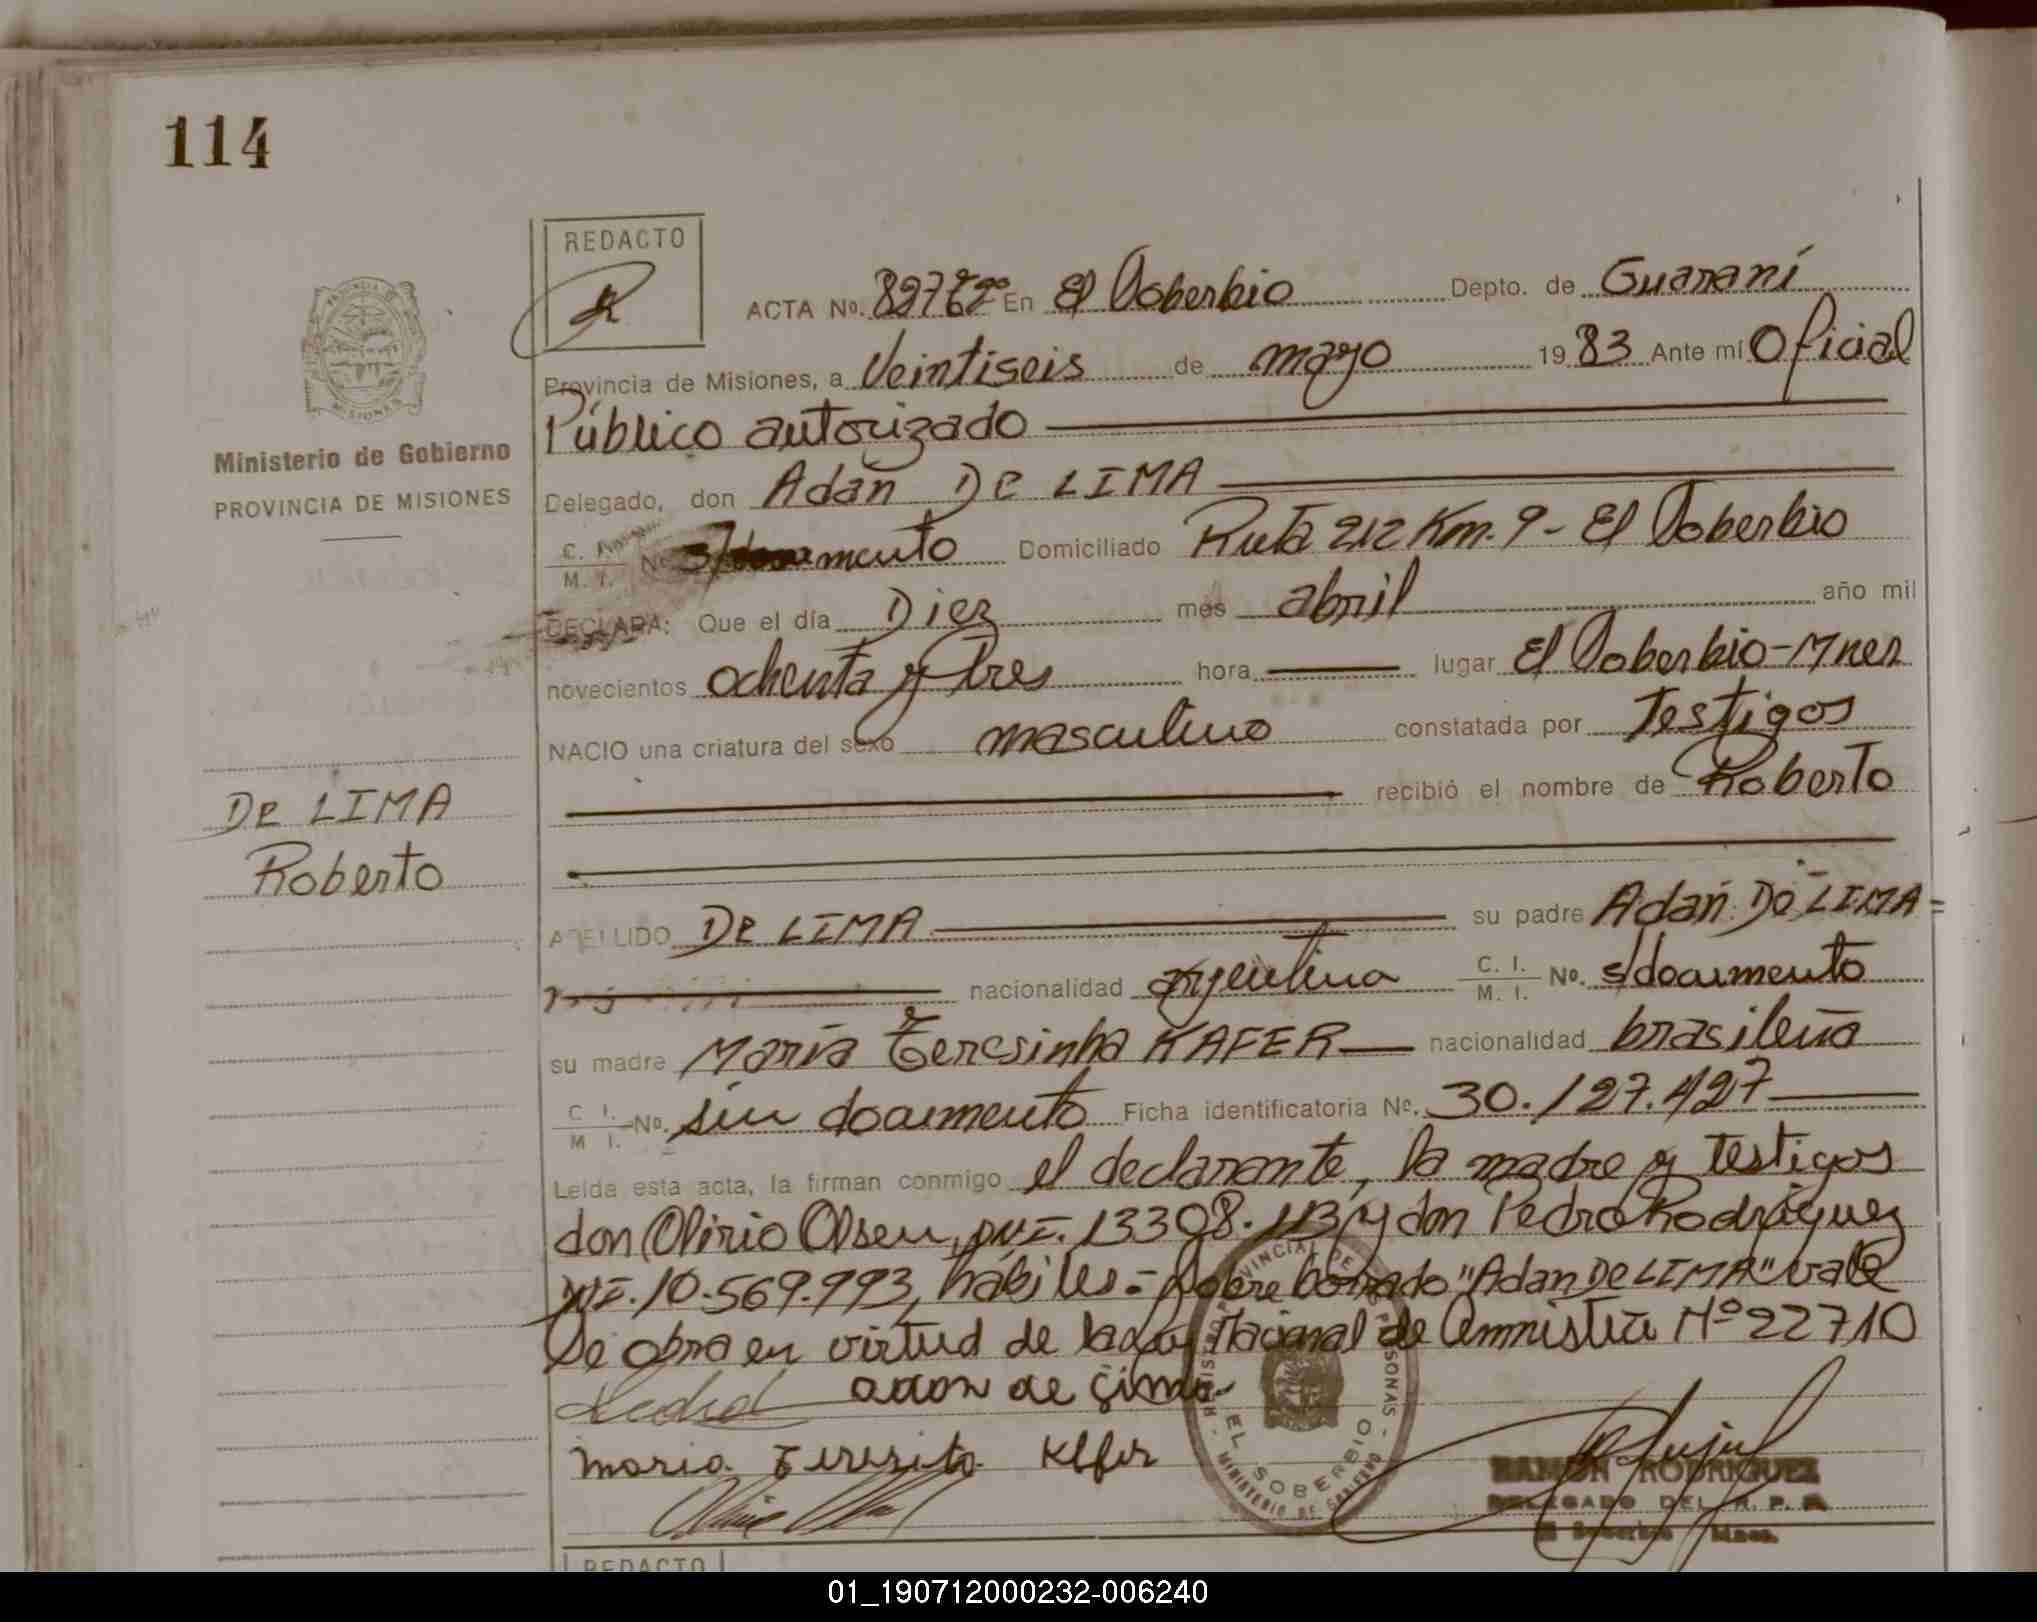 114
REDACTO
ACTA No. En El Soberbio Depto. de Guaraní
Provincia de Misiones, a Veintiseis de mayo 1983 Ante mí Oficial
Público autorizado
Delegado, don Adán De LIMA
C. M. I. No s/documento Domiciliado Ruta 212 Km. 9 - El Soberbio
DECLARA: Que el día Diez mes abril año mil
novecientos ochenta y Tres hora lugar El Soberbio - Mnes
NACIO una criatura del sexo masculino constatada por Testigos
recibió el nombre de Roberto
APELLIDO De LIMA su padre Adán De LIMA =
nacionalidad argentina C. I. M. I. No. s/documento
su madre María Teresinha KAFER nacionalidad brasileña
C. I. M. I. No. sin documento Ficha identificatoria No. 30.127.427
Leída esta acta, la firman conmigo el declarante, la madre y Testigos
don Olirio Olsen, DNI. 13308.113 y don Pedro Rodríguez
DNI. 10.569.993, hábiles = Sobre borrado "Adan De LIMA" vale
Se obra en virtud de la Ley Nacional de Amnistía Nº 22710
adan de Lima
maria Teresita Kefer
PROVINCIA DE MISIONES
Ministerio de Gobierno
PROVINCIA DE MISIONES
De LIMA
Roberto
REGISTRO PROVINCIAL DE LAS PERSONAS - EL SOBERBIO - MINISTERIO DE GOBIERNO
RAMON RODRIGUEZ
DELEGADO DEL R. P. P.
El Soberbio Mnes.
REDACTO
01_190712000232-006240